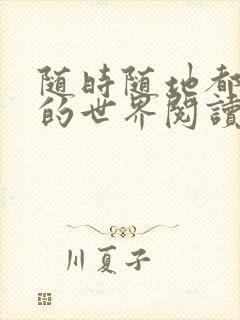 随時随地都
的世界閱讀
川夏子